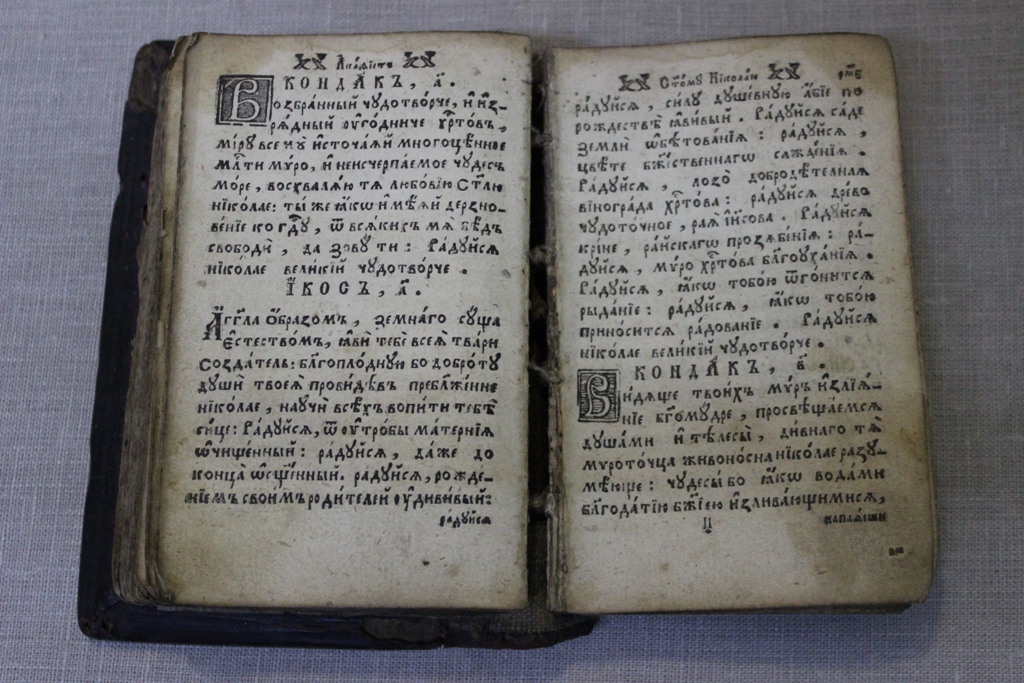 Акаѳїстъ
КОНДА́КЪ, а҃.
Возбра́нный чꙋдотво́рче, и҆ и҆з-
рѧ́дный ᲂу҆го́дниче хрⷭ҇то́въ,
мі́рꙋ всемꙋ̀ и҆сточа́ѧй многоцѣ́нное
млⷭ҇ти мѵ́ро, и҆ неисчерпа́емое чꙋде́съ
мо́ре, восхвалѧ́ю тѧ̀ любо́вїю Ст҃лю
нїко́лае: ты́ же ꙗ҆́кѡ и҆мѣ́ѧй дерзно-
ве́нїе ко гдⷭ҇ꙋ, ѿ всѧ́кихъ мѧ̀ бѣ́дъ
свободѝ, да зовꙋ́ ти: Ра́дꙋйсѧ
нїко́лае вели́кїй чꙋдотво́рче.
І҆́КОСЪ, а҃.
А҆́гг҃ла ѻ҆́бразомъ, земна́го сꙋ́ща
є҆стество́мъ, ꙗ҆вѝ тебѐ всеѧ̀ тва́ри
Созда́тель: бл҃гопло́днꙋю бо добро́тꙋ
дꙋшѝ твоеѧ̀ прови́дѣвъ пребл҃же́нне
нїко́лае, наꙋчѝ всѣ́хъ вопи́ти тебѣ̀
си́це: Ра́дꙋйсѧ, ѿ ᲂу҆тро́бы ма́тернїѧ
ѡ҆чище́нный: ра́дꙋйсѧ, да́же до
конца̀ ѡ҆сщ҃е́нный. ра́дꙋйсѧ, рожде́-
нїемъ свои́мъ роди́телей ᲂу҆диви́вый:
ра́дꙋйсѧ
Ст҃о́мꙋ Нїкола́ю рм҃є
ра́дꙋйсѧ, си́лꙋ дꙋше́внꙋю а҆́бїе по
рождествѣ̀ ꙗ҆ви́вый. Ра́дꙋйсѧ са́де
землѝ ѡ҆бѣтова́нїѧ: ра́дꙋйсѧ,
цвѣ́те бж҃е́ственнагѡ сажде́нїѧ.
Ра́дꙋйсѧ, лозо̀ добродѣ́телнаѧ
вїногра́да хрⷭ҇то́ва: ра́дꙋйсѧ дре́во
чꙋдото́чное, раѧ̀ і҆и҃сова. Ра́дꙋйсѧ
кри́не, ра́йскагѡ прозѧбе́нїѧ: ра́-
дꙋйсѧ, мѵ́ро хрⷭ҇то́ва бл҃гоꙋха́нїѧ.
Ра́дꙋйсѧ, ꙗ҆́кѡ тобо́ю ѿго́нитсѧ
рыда́нїе: ра́дꙋйсѧ, ꙗ҆́кѡ тобо́ю
прино́ситсѧ ра́дованїе. Ра́дꙋйсѧ
нїко́лае вели́кїй чꙋдотво́рче.
КОНДА́КЪ, в҃.
Ви́дѧще твои́хъ мѵ́ръ и҆злїѧ́-
нїе бг҃омꙋ́дре, просвѣща́емсѧ
дꙋша́ми и҆ тѣлесы̀, ди́внаго тѧ̀
мѵрото́чца живоно́сна нїко́лае разꙋ-
мѣ́юще: чꙋдесы́ бо ꙗ҆́кѡ вода́ми
бл҃года́тїю бж҃їею и҆злива́ющимисѧ,
напаѧ́еши